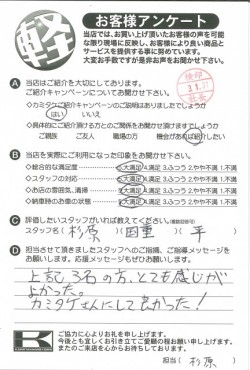 軽
お客様アンケート
当店では、お買い上げ頂いたお客様の声を可能
な限り現場に反映し、お客様により良い商品と
サービスを提供する事に努めています。
大変お手数ですが是非お声をお聞かせ下さい。
A 当店はご紹介を大切にしてます。
ご紹介キャンペーンについてお聞かせ下さい。
検印
◇カミタケご紹介キャンペーンのご説明はありましたでしょうか
はい いいえ
◇具体的にご紹介頂ける方とのご関係をお聞かせ頂けますでしょうか
ご親族 ご友人 職場の方 機会があれば紹介したい
B 当店を実際にご利用になった印象をお聞かせ下さい。
◇総合的な満足度 5.大満足 4.満足 3.ふつう 2.やや不満 1.不満
◇スタッフの対応 5.大満足 4.満足 3.ふつう 2.やや不満 1.不満
◇お店の雰囲気、清掃 5.大満足 4.満足 3.ふつう 2.やや不満 1.不満
◇納車時のお車の状態 5.大満足 4.満足 3.ふつう 2.やや不満 1.不満
C 評価したいスタッフがいれば教えてください。(複数回答可)
スタッフ名( 杉原 )( )( 平 )
D 担当させて頂きましたスタッフへのご指摘、ご指導メッセージを
お願いします。応援メッセージもぜひお願いします。
上記3名の方、とても感じが
よかった。
カミタケさんにして良かった!
K
ご協力に心よりお礼を申し上げます。
今後とも宜しくお引き立てご愛顧の程お願い申し上げます。
またのご来店を心からお待ちしております。
担当( 杉原 )